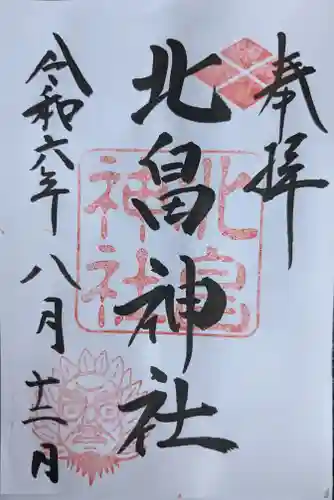 奉拝
北畠神社
令和六年
八月
十二月
北畠
神社